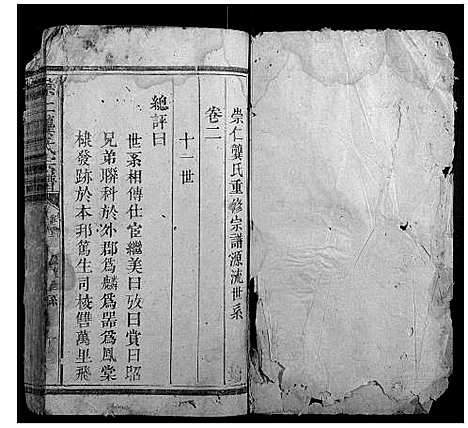 崇仁龔氏重修宗譜源流世系
卷二
十一世
總評曰
世系相傳仕宦繼美曰攷曰賞曰昭
兄弟聯科於外郡為麟為器為鳳棠
棣發跡於本邦篤生司校讐萬里飛